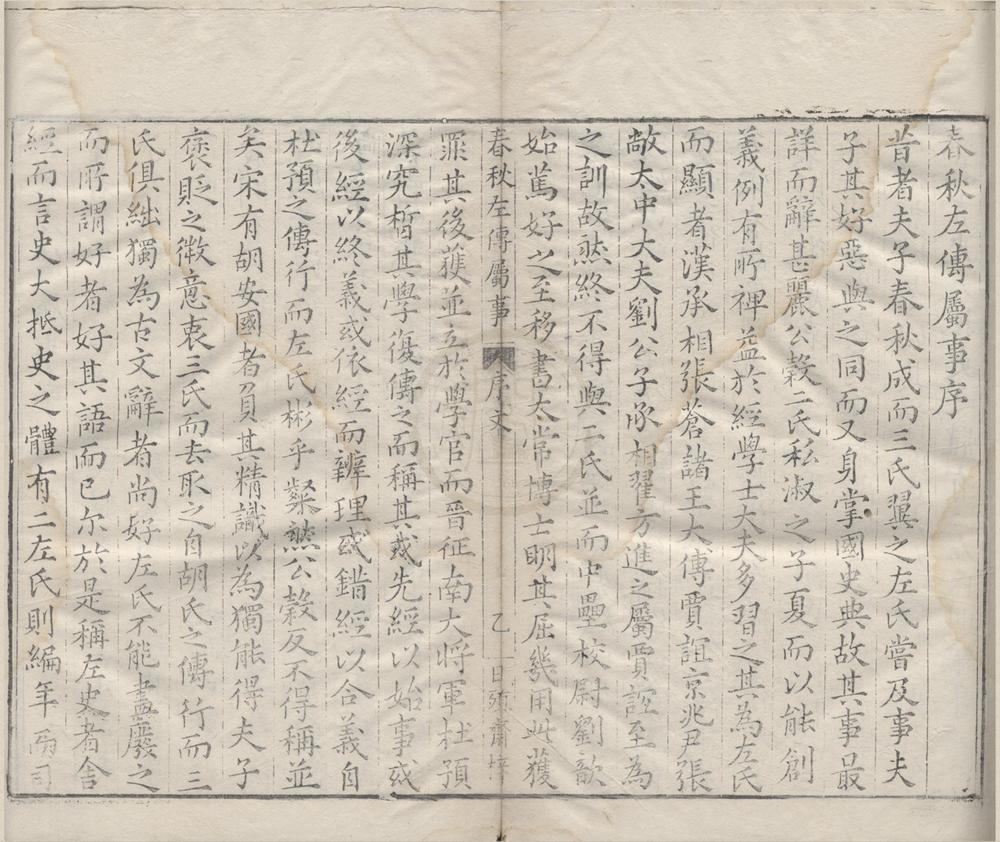 春秋左傳屬事序
昔者夫子春秋成而三氏翼之左氏嘗及事夫
子其好惡與之同而又身掌國史典故其事最
詳而辭甚麗公穀二氏私淑之子夏而以能創
義例有所裨益於經學士大夫多習之其為左氏
而顯者漢丞相張蒼諸王大傅賈誼京兆尹張
敞太中大夫劉公子丞相翟方進之屬賈誼至為
之訓故然終不得與二氏並而中壘校尉劉歆
始篤好之至移書太常博士明其屈幾用此獲
春秋左傳屬事
序文
乙
日殖齋梓
罪其後獲並立於學官而晉征南大將軍杜預
深究晢其學復傳之而稱其或先經以始事或
後經以終義或依經而辨理或錯經以合義自
杜預之傳行而左氏彬乎粲然公穀反不得稱並
矣宋有胡安國者負其精識以為獨能得夫子
褒貶之微意衷三氏而去取之自胡氏之傳行而三
氏俱絀獨為古文辭者尚好左氏不能盡廢之
而所謂好者好其語而已尔於是稱左史者舍
經而言史大抵史之體有二左氏則編年而司